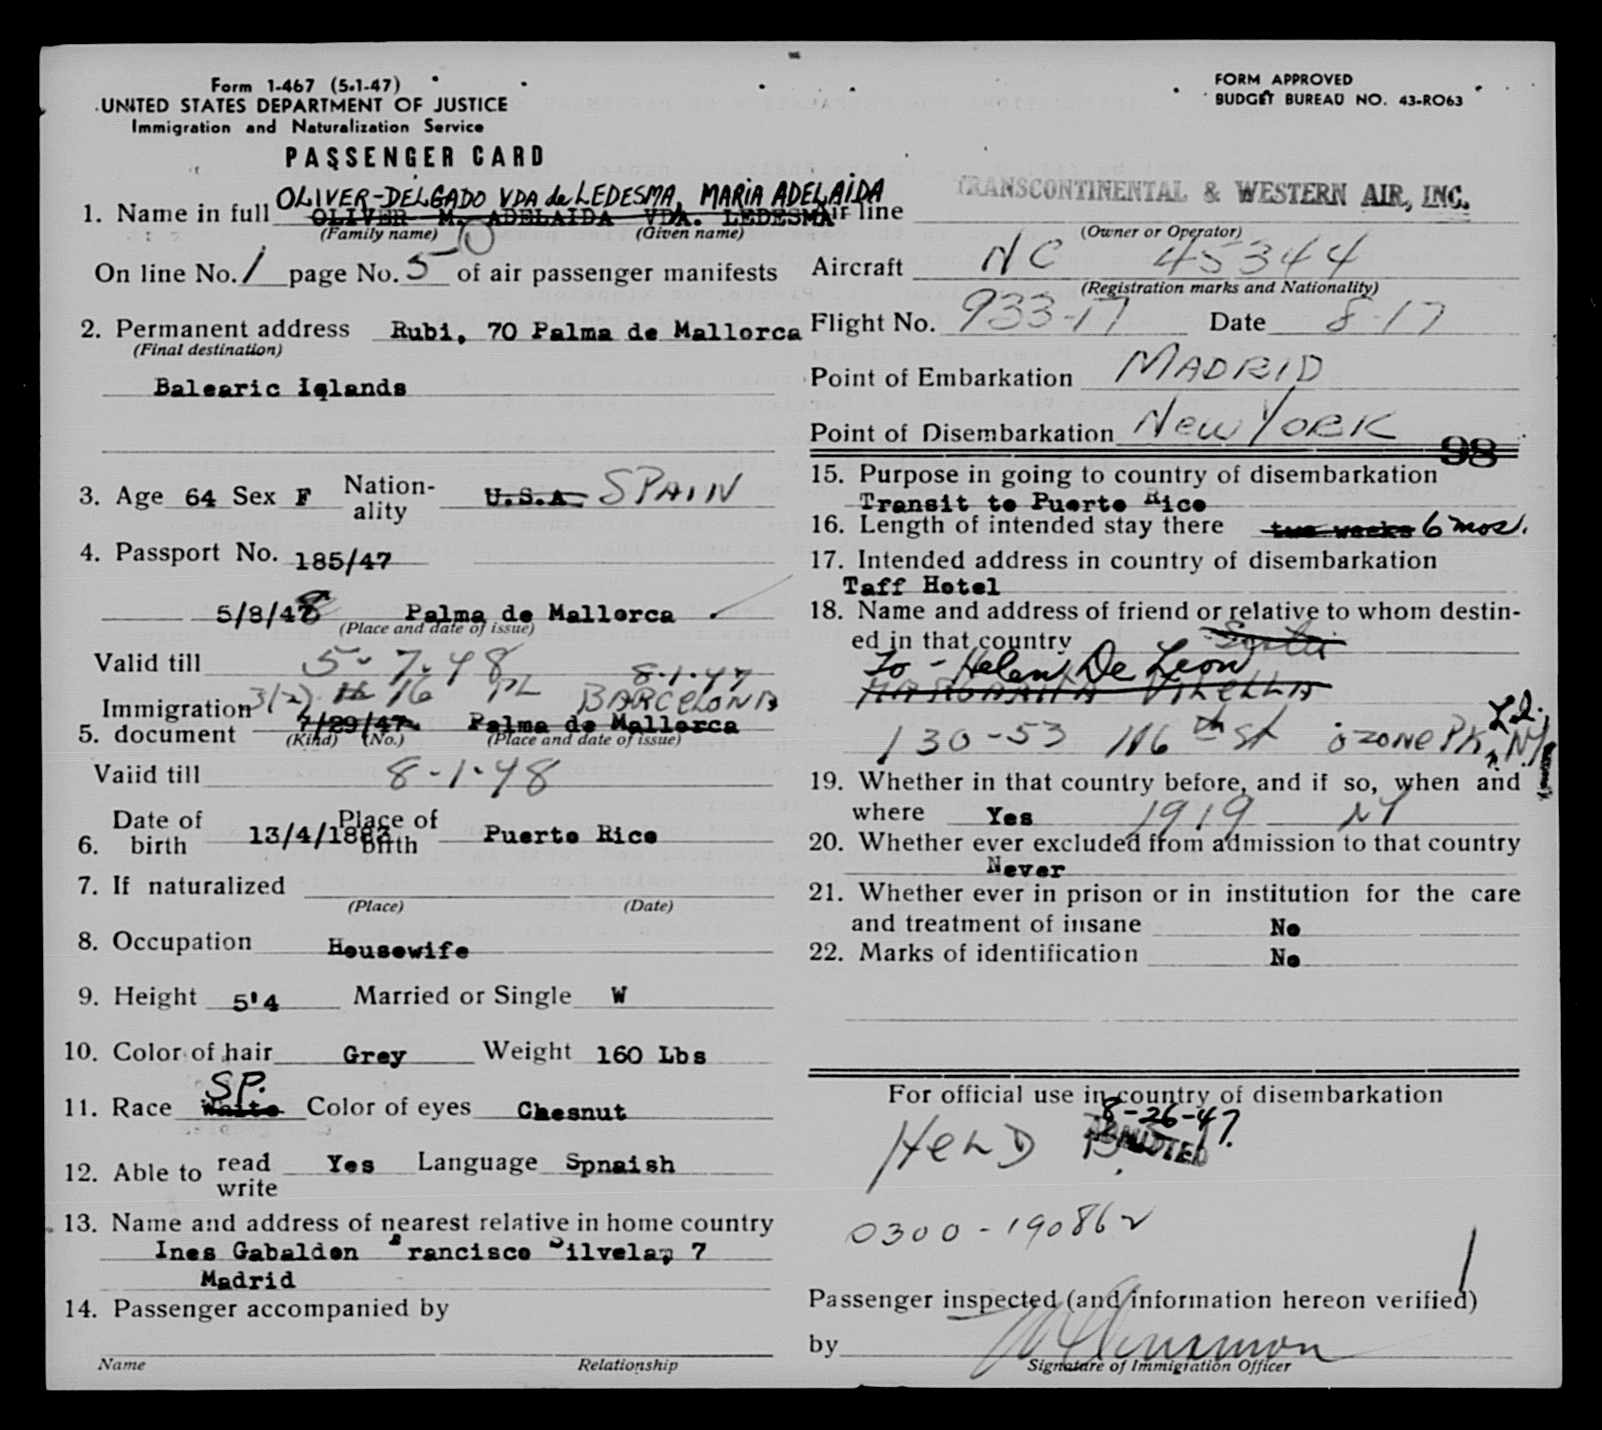 Form 1-467 (5-1-47)
UNITED STATES DEPARTMENT OF JUSTICE
Immigration and Naturalization Service
PASSENGER CARD
FORM APPROVED
BUDGET BUREAU NO. 43-RO63
OLIVER-DELGADO VDA de LEDESMA, MARIA ADELAIDA
1. Name in full OLIVER M. ADELAIDA VDA. LEDESMA
(Family name) (Given name)
On line No. 1 page No. 5 of air passenger manifests
2. Permanent address Rubi, 70 Palma de Mallorca
(Final destination)
Balearic Iqlands
3. Age 64 Sex F Nation-ality U.S.A. SPAIN
4. Passport No. 185/47
5/8/48 Palma de Mallorca
(Place and date of issue)
Valid till 5-7-48
8-1-47
3(2) 16 PL BARCELONA
5. Immigration document 7/29/47 Palma de Mallorca
(Kind) (No.) (Place and date of issue)
Valid till 8-1-48
6. Date of birth 13/4/1883 Place of birth Puerto Rico
7. If naturalized
(Place) (Date)
8. Occupation Housewife
9. Height 5'4 Married or Single W
10. Color of hair Grey Weight 160 Lbs
SP.
11. Race White Color of eyes Chesnut
12. Able to read write Yes Language Spnaish
13. Name and address of nearest relative in home country
Ines Gabaldon Francisco Silvela, 7
Madrid
14. Passenger accompanied by
Name Relationship
Air line TRANSCONTINENTAL & WESTERN AIR, INC.
(Owner or Operator)
Aircraft NC 45344
(Registration marks and Nationality)
Flight No. 933-17 Date 8-17
Point of Embarkation MADRID
Point of Disembarkation New YORK
98
15. Purpose in going to country of disembarkation
Transit to Puerto Rico
16. Length of intended stay there two weeks 6 mos.
17. Intended address in country of disembarkation
Taff Hotel
18. Name and address of friend or relative to whom destin-
ed in that country Sister
To - Helen De Leon
MARGARITA VILELLA
130-53 116th St Ozone PK, L.I. N.Y.
19. Whether in that country before, and if so, when and
where Yes 1919 NY
20. Whether ever excluded from admission to that country
Never
21. Whether ever in prison or in institution for the care
and treatment of insane No
22. Marks of identification No
For official use in country of disembarkation
8-26-47
HELD ADMITTED
0300-190862
Passenger inspected (and information hereon verified)
by
Signature of Immigration Officer